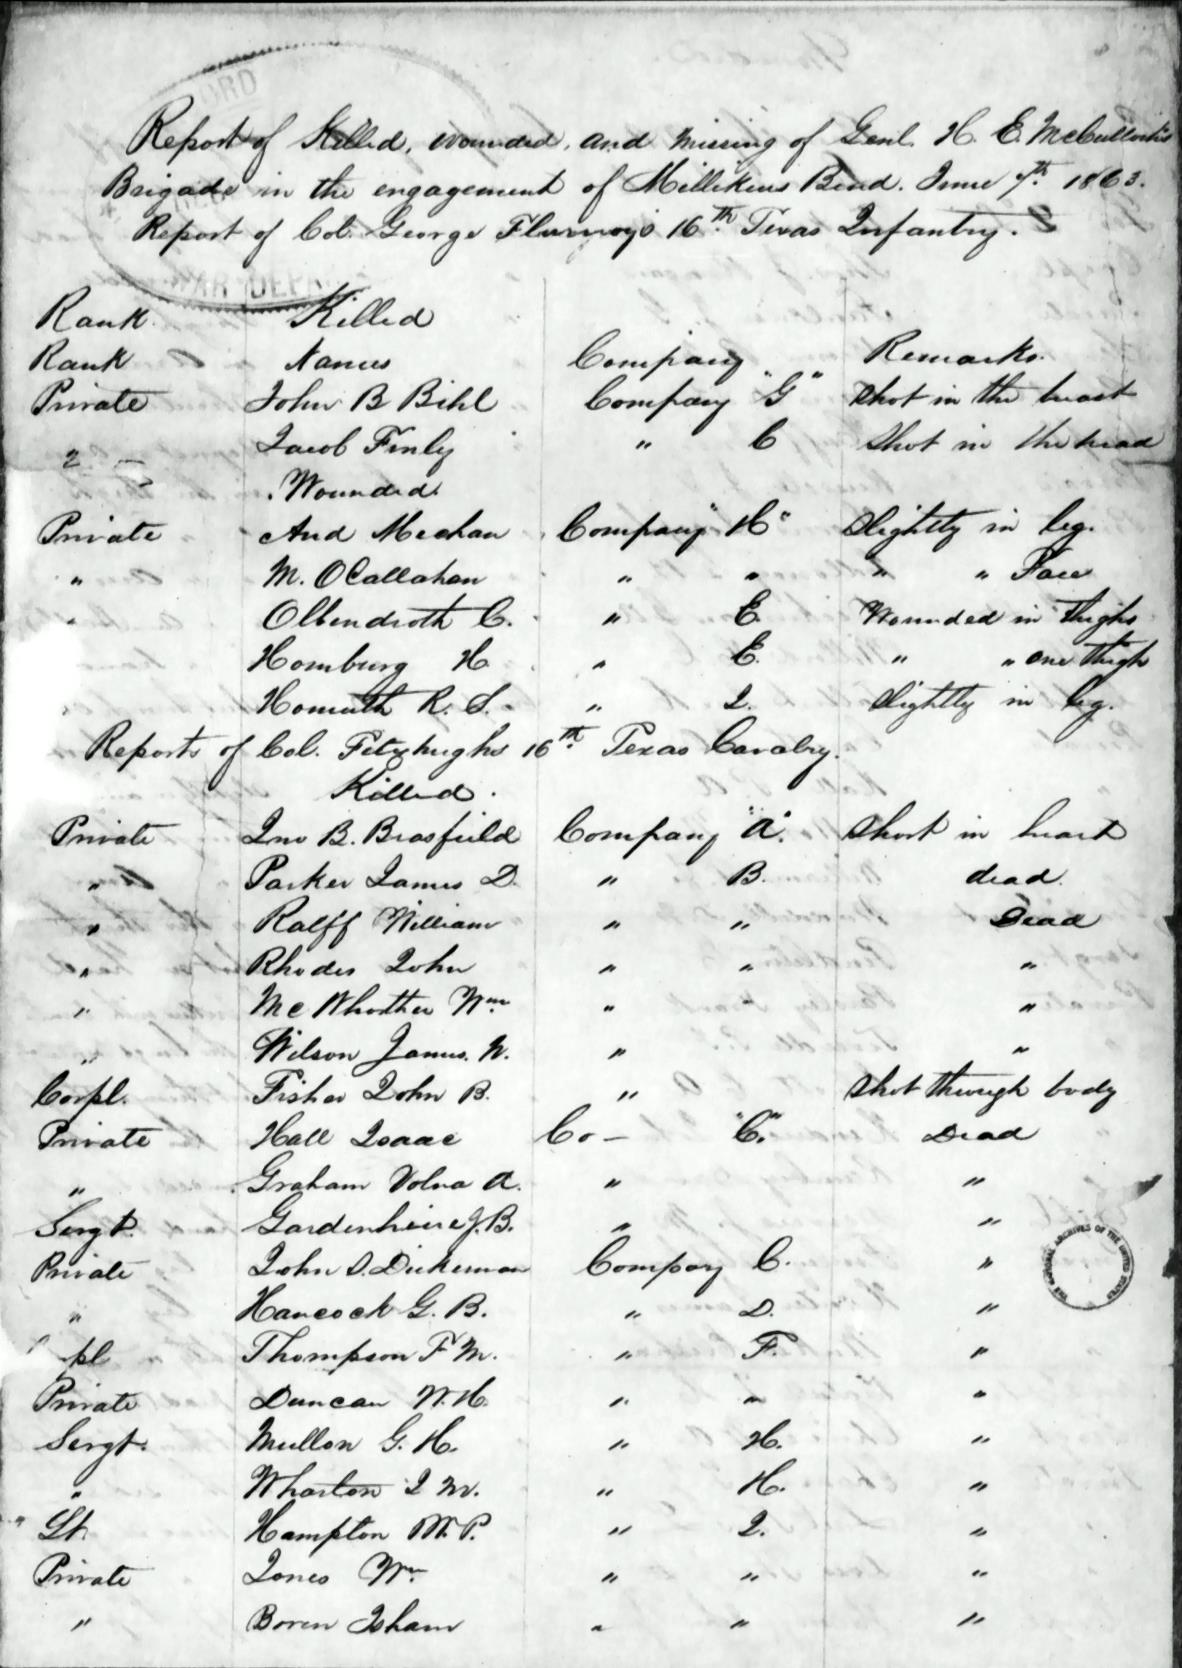 Report of Killed, wounded, and missing of Genl. H. E. McCulloch's
Brigade in the engagement of Millikins Bend. June 7th 1863.
Report of Col. George Flurnoy's 16th Texas Infantry.
Rank. Killed
Rank Names Company Remarks.
Private John B Bihl Company "G" Shot in the breast
" Jacob Finly " C Shot in the head
2
Wounded.
Private And Mechan Company "H" Slightly in leg.
" M. OCallahan " " " " Face
" Olbendroth C. " E. Wounded in thighs
Homburg H " E. " " one thigh
Homuth R. S. " I. Slightly in leg.
Reports of Col. Fitzhughs 16th Texas Cavalry.
Killed.
Private Jno B. Brasfield Company "A". Short in heart
" Parker James D. " B. dead.
" Ralff William " " Dead
" Rhodes John " " "
" McWhorther Wm " "
" Wilson James. N. " "
Corpl. Fisher John B. " Shot through body
Private Hall Isaac Co - "C." Dead
" Graham Volna A. " "
Sergt. Gardenheire J. B. " "
Private John S. Dickerman Company C. "
" Hancock G. B. " D. "
pl Thompson F M. " F. "
Private Duncan W. H. " " "
Sergt. Mullon G. H. " H. "
" Wharton J M. " H. "
Lt. Hampton M. P. " I. "
Private Jones Wm " " "
" Boren Isham " " "
WAR DEPT
THE NATIONAL ARCHIVES OF THE UNITED STATES